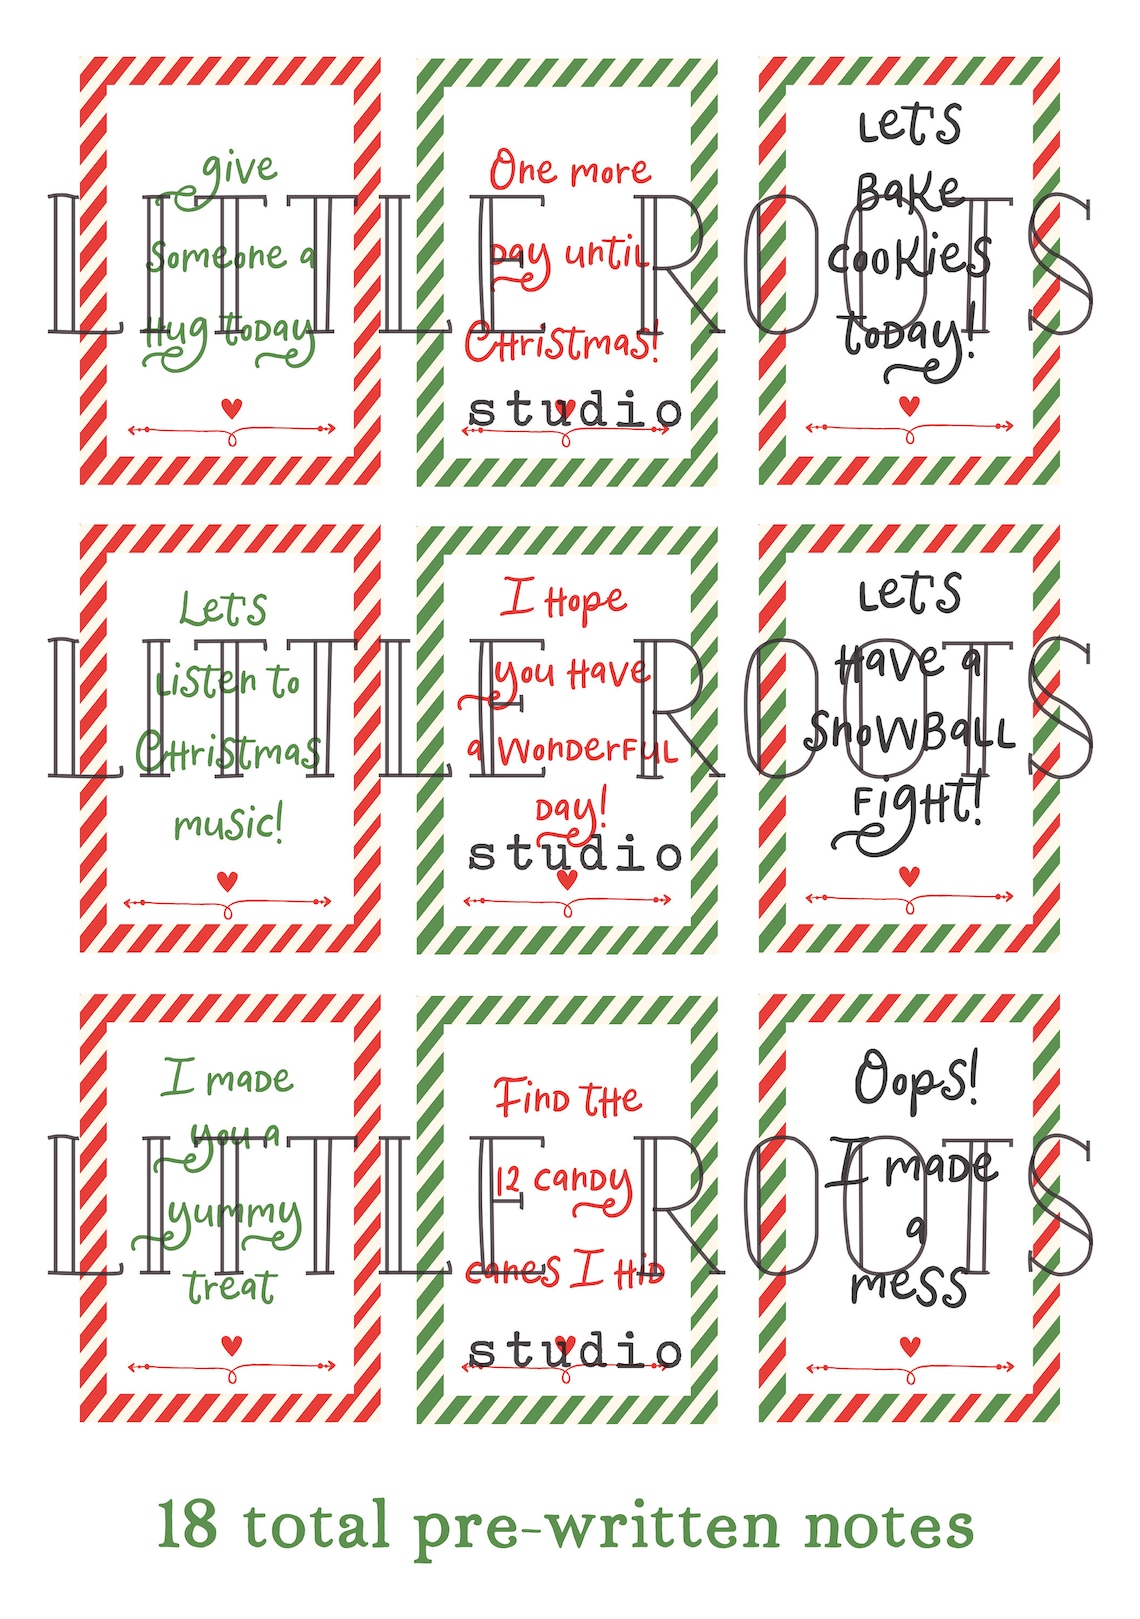 give
Someone a
Hug today
One more
Day until
Christmas!
Let's
Bake
cookies
today!
Let's
Listen to
Christmas
music!
I Hope
you Have
a Wonderful
Day!
Let's
Have a
Snowball
Fight!
I made
you a
yummy
treat
Find the
12 candy
canes I Hid
Oops!
I made
a
mess
LITTLE ROOTS
studio
LITTLE ROOTS
studio
LITTLE ROOTS
studio
18 total pre-written notes